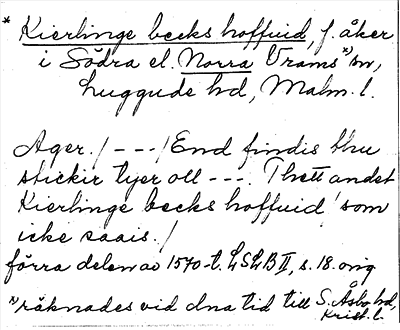 * Kierlinge becks hoffuid, f. åker
i Södra el. Norra Vrams *) sn,
Luggude hd, Malm. l.
Ager. / - - - / End findis thu
stickir lyer oll - - -. Thett andet
Kierlinge becks hoffuid som
icke saais. /
förra delen av 1570-t. LSLB II, s. 18. orig
*) räknades vid dna tid till S. Åsbo hd,
Krist. l.